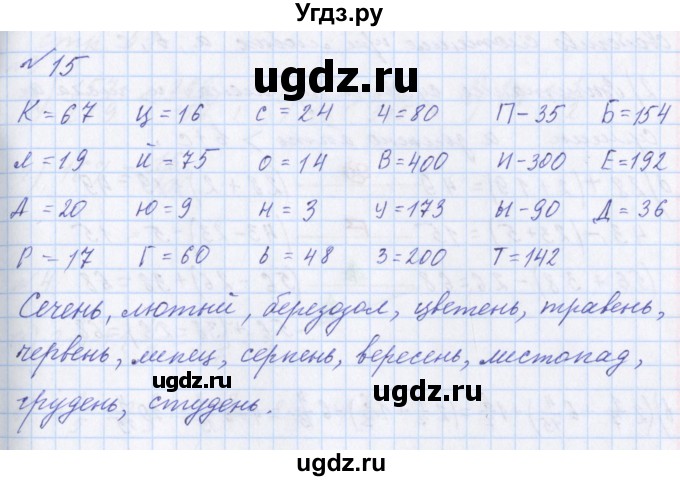 Угдз.ру
№15
ugdz.ru
К=67 Ц=16 С=24 Ч=80 П-35 Б=154
Л=19 Й=75 О=14 В=400 И-300 Е=192
А=20 Ю=9 Н=3 У=173 Ы-90 Д=36
Р-17 Г=60 Ь=48 З=200 Т=142
Сечень, лютый, березозол, цветень, травень,
червень, липец, серпень, вересень, листопад,
ugdz.ru
ugdz.ru
грудень, студень.
ugdz.ru